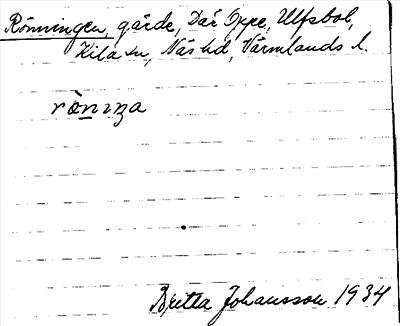 Rönningen, gärde, Där Oppe, Ulfsbol,
Kila sn, Näs hd, Värmlands l.
rö̀nıŋa
Britta Johansson 1934